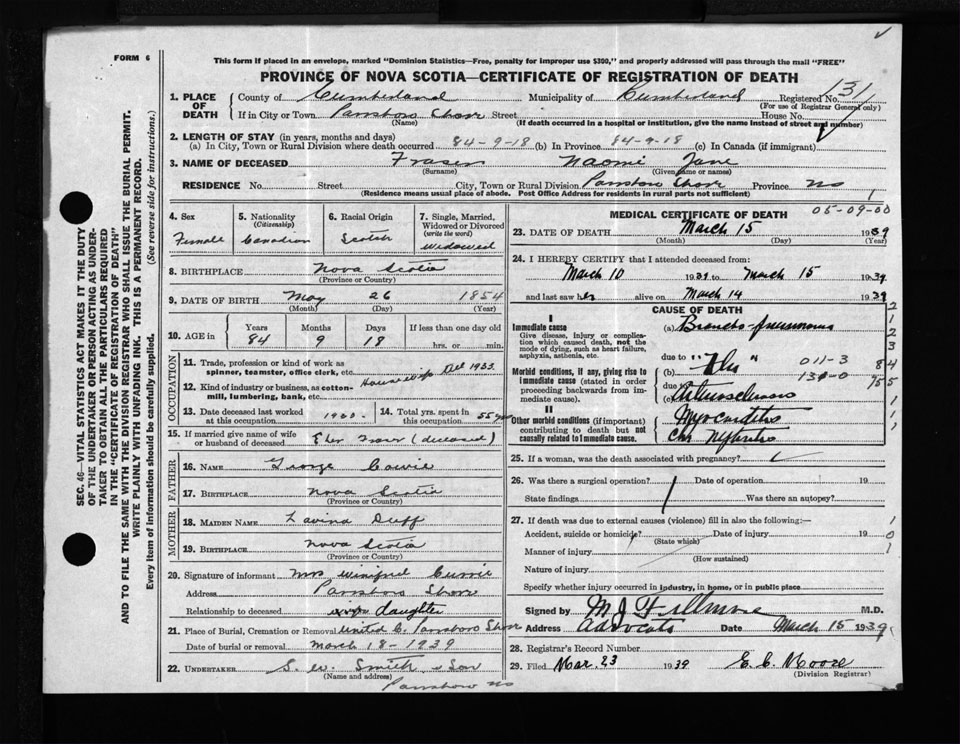 FORM 6
This form if placed in an envelope, marked "Dominion Statistics—Free, penalty for improper use $300," and properly addressed will pass through the mail "FREE"
PROVINCE OF NOVA SCOTIA—CERTIFICATE OF REGISTRATION OF DEATH
1. PLACE OF DEATH County of Cumberland Municipality of Cumberland Registered No. 31
(For use of Registrar General only)
If in City or Town Parrsboro Shore Street House No.
(Name) (If death occurred in a hospital or institution, give the name instead of street and number)
2. LENGTH OF STAY (in years, months and days)
(a) In City, Town or Rural Division where death occurred 84-9-18 (b) In Province 84-9-18 (c) In Canada (if immigrant)
3. NAME OF DECEASED Fraser Naomi Jane
(Surname) (Given name or names)
RESIDENCE No. Street City, Town or Rural Division Parrsboro Shore Province NS
(Residence means usual place of abode. Post Office Address for residents in rural parts not sufficient)
4. Sex
Female
5. Nationality
(Citizenship)
Canadian
6. Racial Origin
Scotch
7. Single, Married, Widowed or Divorced
(write the word)
widowed
8. BIRTHPLACE Nova Scotia
(Province or Country)
9. DATE OF BIRTH May 26 1854
(Month) (Day) (Year)
10. AGE in Years Months Days If less than one day old
84 9 18 hrs. or min.
OCCUPATION
11. Trade, profession or kind of work as
spinner, teamster, office clerk, etc.
Housewife Dec 1933
12. Kind of industry or business, as cotton-
mill, lumbering, bank, etc.
13. Date deceased last worked
at this occupation 1930
14. Total yrs. spent in
this occupation 55 years
15. If married give name of wife
or husband of deceased (deceased)
FATHER
16. NAME George Cowie
17. BIRTHPLACE Nova Scotia
(Province or Country)
MOTHER
18. MAIDEN NAME Lavina Duff
19. BIRTHPLACE Nova Scotia
(Province or Country)
20. Signature of informant Mrs Winifred Currie
Address Parrsboro Shore
Relationship to deceased daughter
21. Place of Burial, Cremation or Removal United C. Parrsboro Shore
Date of burial or removal March 18-1939
22. UNDERTAKER S. W. Smith & Son
(Name and address)
Parrsboro NS
MEDICAL CERTIFICATE OF DEATH
05-09-00
23. DATE OF DEATH March 15 1939
(Month) (Day) (Year)
24. I HEREBY CERTIFY that I attended deceased from:
March 10 1939 to March 15 1939
and last saw her alive on March 14 1939
CAUSE OF DEATH
I
Immediate cause
Give disease, injury or complica-
tion which caused death, not the
mode of dying, such as heart failure,
asphyxia, asthenia, etc.
(a) Broncho-pneumonia
due to
(b) "Flu" 011-3
Morbid conditions, if any, giving rise to
immediate cause (stated in order
proceeding backwards from im-
mediate cause).
due to
(c) Arteriosclerosis
II
Other morbid conditions (if important)
contributing to death but not
causally related to immediate cause.
Myocarditis
Chr Nephritis
25. If a woman, was the death associated with pregnancy?
26. Was there a surgical operation? Date of operation 19
State findings Was there an autopsy?
27. If death was due to external causes (violence) fill in also the following:—
Accident, suicide or homicide? Date of injury 19
(State which)
Manner of injury
(How sustained)
Nature of injury
Specify whether injury occurred in industry, in home, or in public place
Signed by M J Fillmore M.D.
Address Advocate Date March 15 1939
28. Registrar's Record Number
29. Filed Mar. 23 1939 E. C. Moore
(Division Registrar)
SEC. 46—VITAL STATISTICS ACT MAKES IT THE DUTY
OF THE UNDERTAKER OR PERSON ACTING AS UNDER-
TAKER TO OBTAIN ALL THE PARTICULARS REQUIRED
IN THE "CERTIFICATE OF REGISTRATION OF DEATH"
AND TO FILE THE SAME WITH THE DIVISION REGISTRAR WHO SHALL ISSUE THE BURIAL PERMIT.
WRITE PLAINLY WITH UNFADING INK. THIS IS A PERMANENT RECORD.
Every item of information should be carefully supplied. (See reverse side for instructions.)